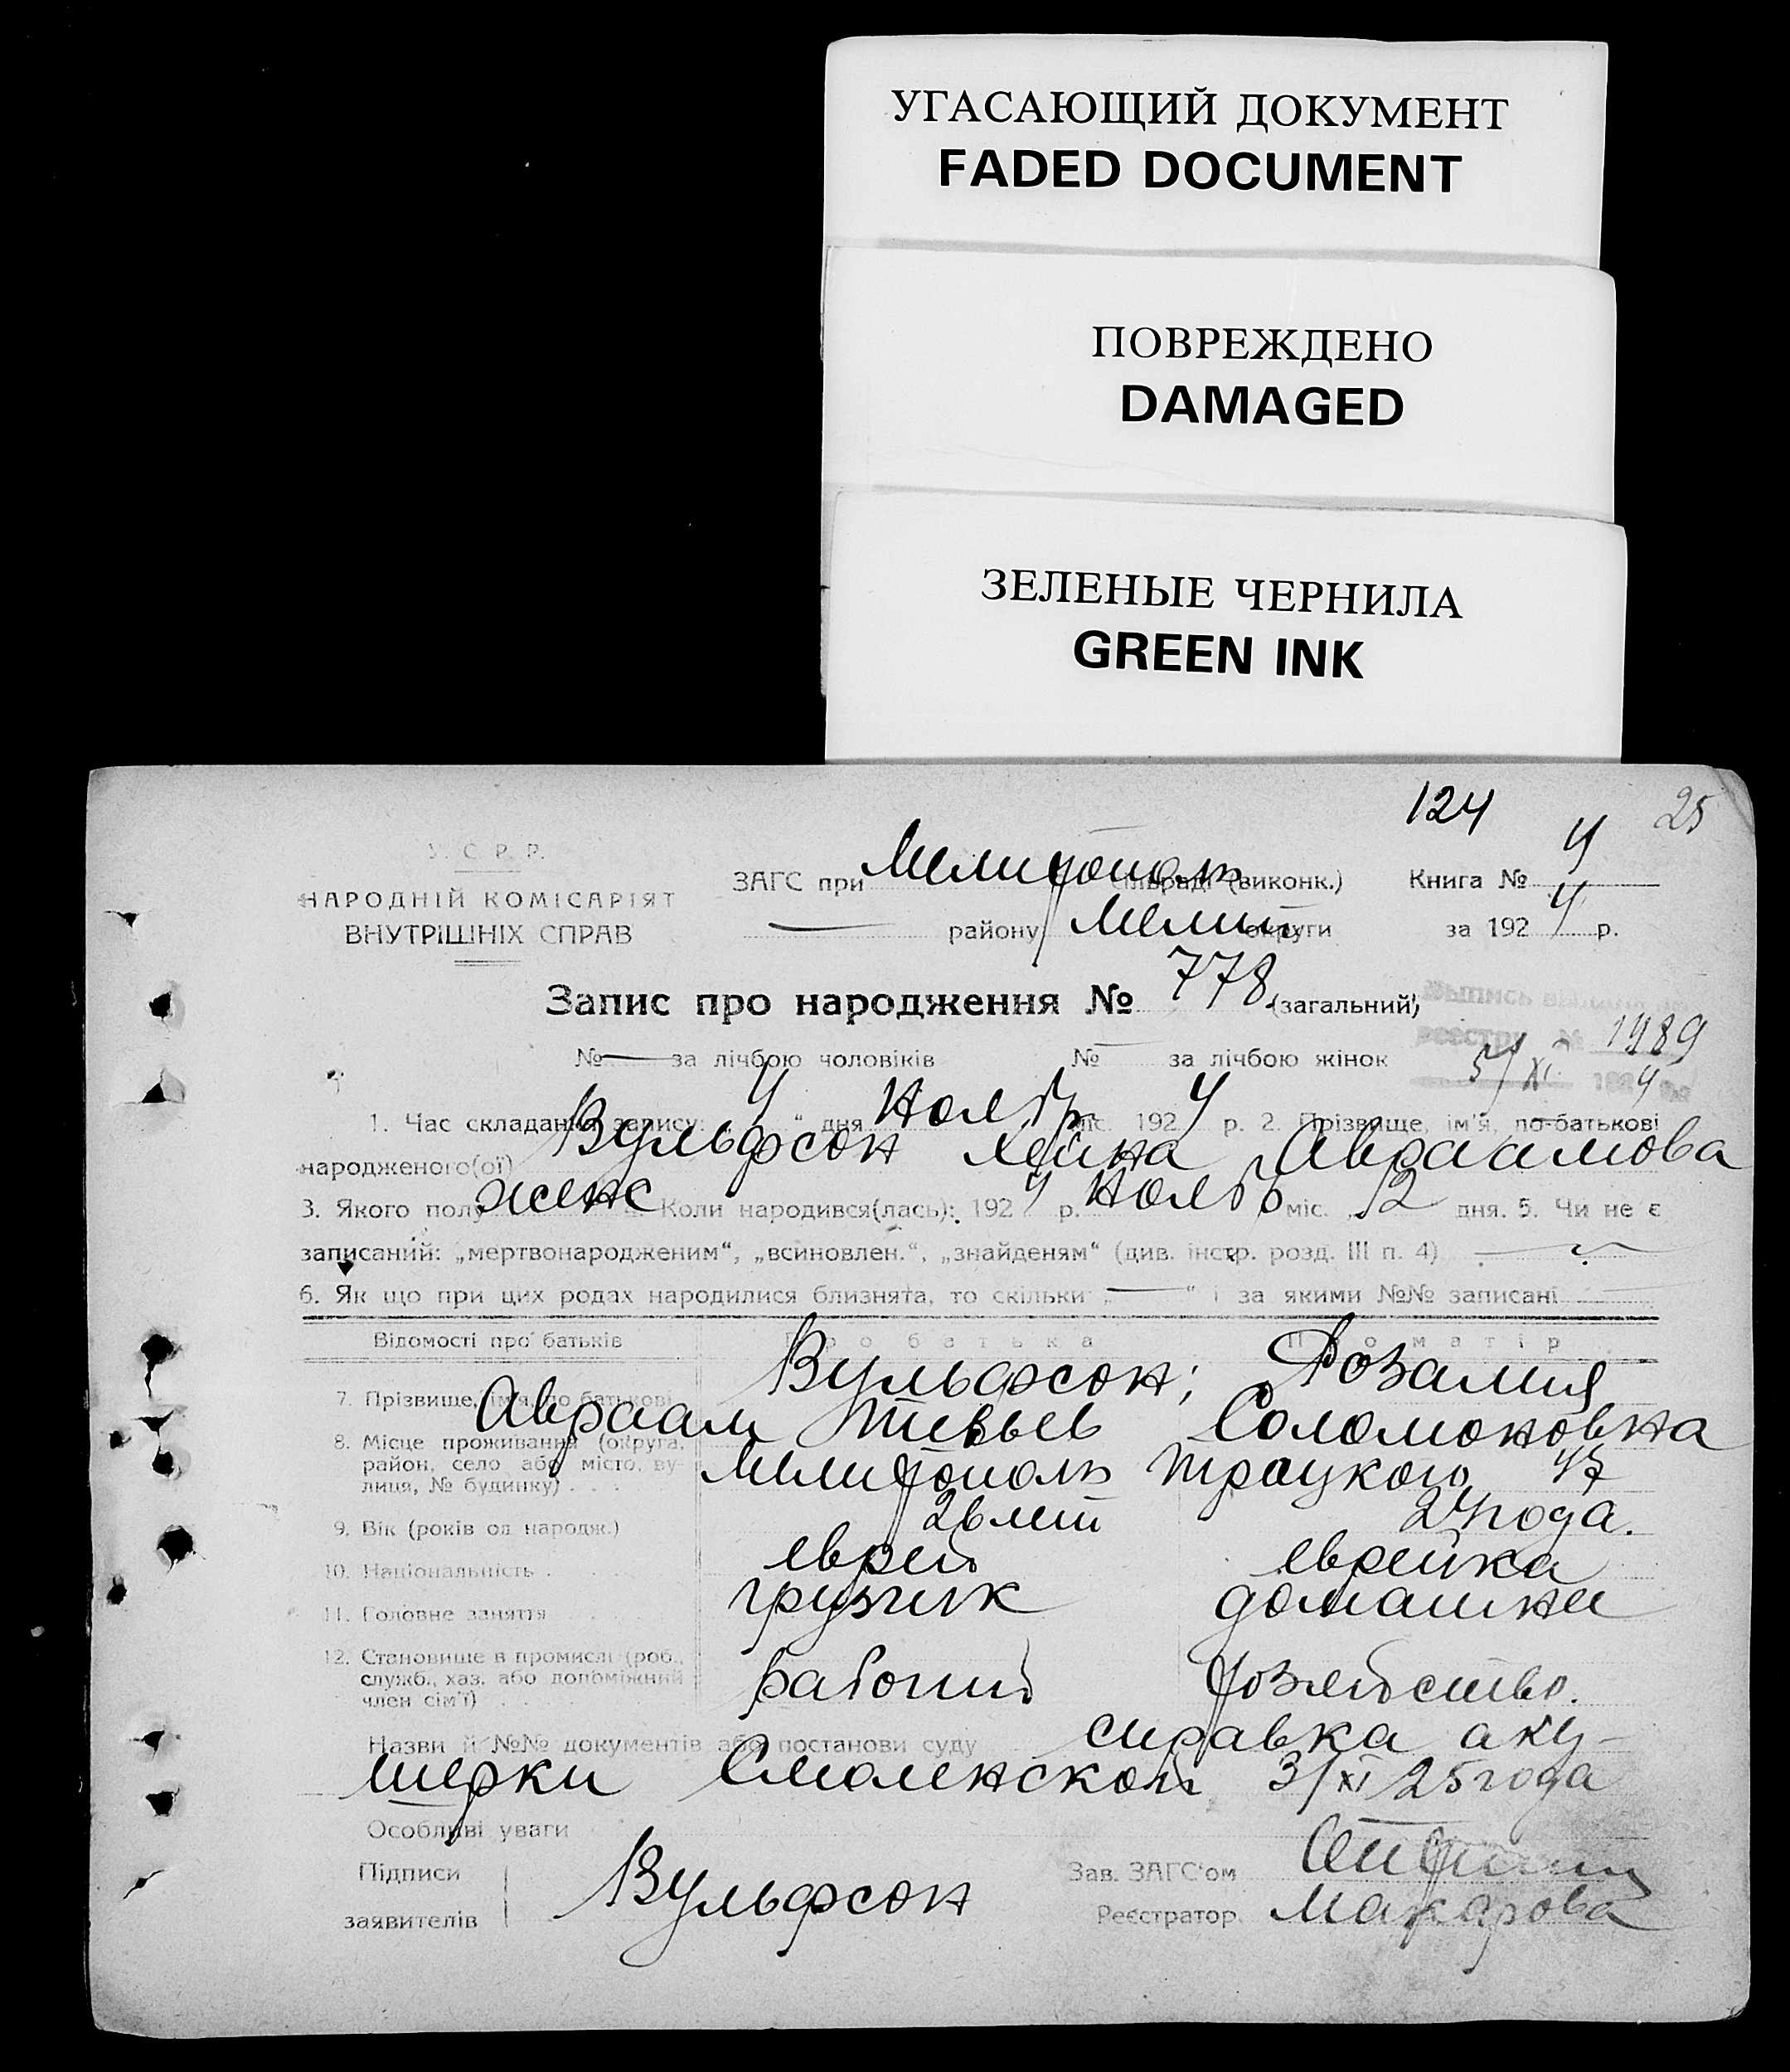 УГАСАЮЩИЙ ДОКУМЕНТ
FADED DOCUMENT
ПОВРЕЖДЕНО
DAMAGED
ЗЕЛЕНЫЕ ЧЕРНИЛА
GREEN INK
124 25
У. С. Р. Р.
НАРОДНІЙ КОМІСАРІЯТ
ВНУТРІШНІХ СПРАВ
ЗАГС при Мелитополь сільраді (виконк.) Книга № 4
району Мелит округи за 1924 р.
Запис про народження № 778 (загальний)
1989
№ — за лічбою чоловіків № — за лічбою жінок
5/XI 4
1. Час складання запису: „4“ дня Ноябр міс. 1924 р. 2. Прізвище, ім'я, по-батькові
народженого(ої) Вульфсон Хейна Авраамова
3. Якого полу женс 4. Коли народився(лась): 1924 р. Ноябр міс. 2 дня. 5. Чи не є
записаний: „мертвонародженим“, „всиновлен.“, „знайденям“ (див. інстр. розд. III п. 4)
6. Як що при цих родах народилися близнята, то скільки „—“ і за якими №№ записані
Відомості про батьків Про батька Про матір
7. Прізвище, ім'я, по батькові Вульфсон; Розалия
Авраам Тевьев Соломоновна
8. Місце проживання (округа, район, село або місто, вулиця, № будинку) . . . Мелитополь Троцкого 47
9. Вік (років од народж.) 26 лет 24 года.
10. Національність . еврей еврейка
11. Головне заняття грузчик домашнее
12. Становище в промислі (роб., служб., хаз. або допоміжний член сім'ї) . . . рабочий хозяйство.
Назви й №№ документів або постанови суду справка аку-
шерки Смоленской 3/XI 25 года
Особливі уваги
Підписи
заявителів Вульфсон
Зав. ЗАГС'ом
Реєстратор Макарова